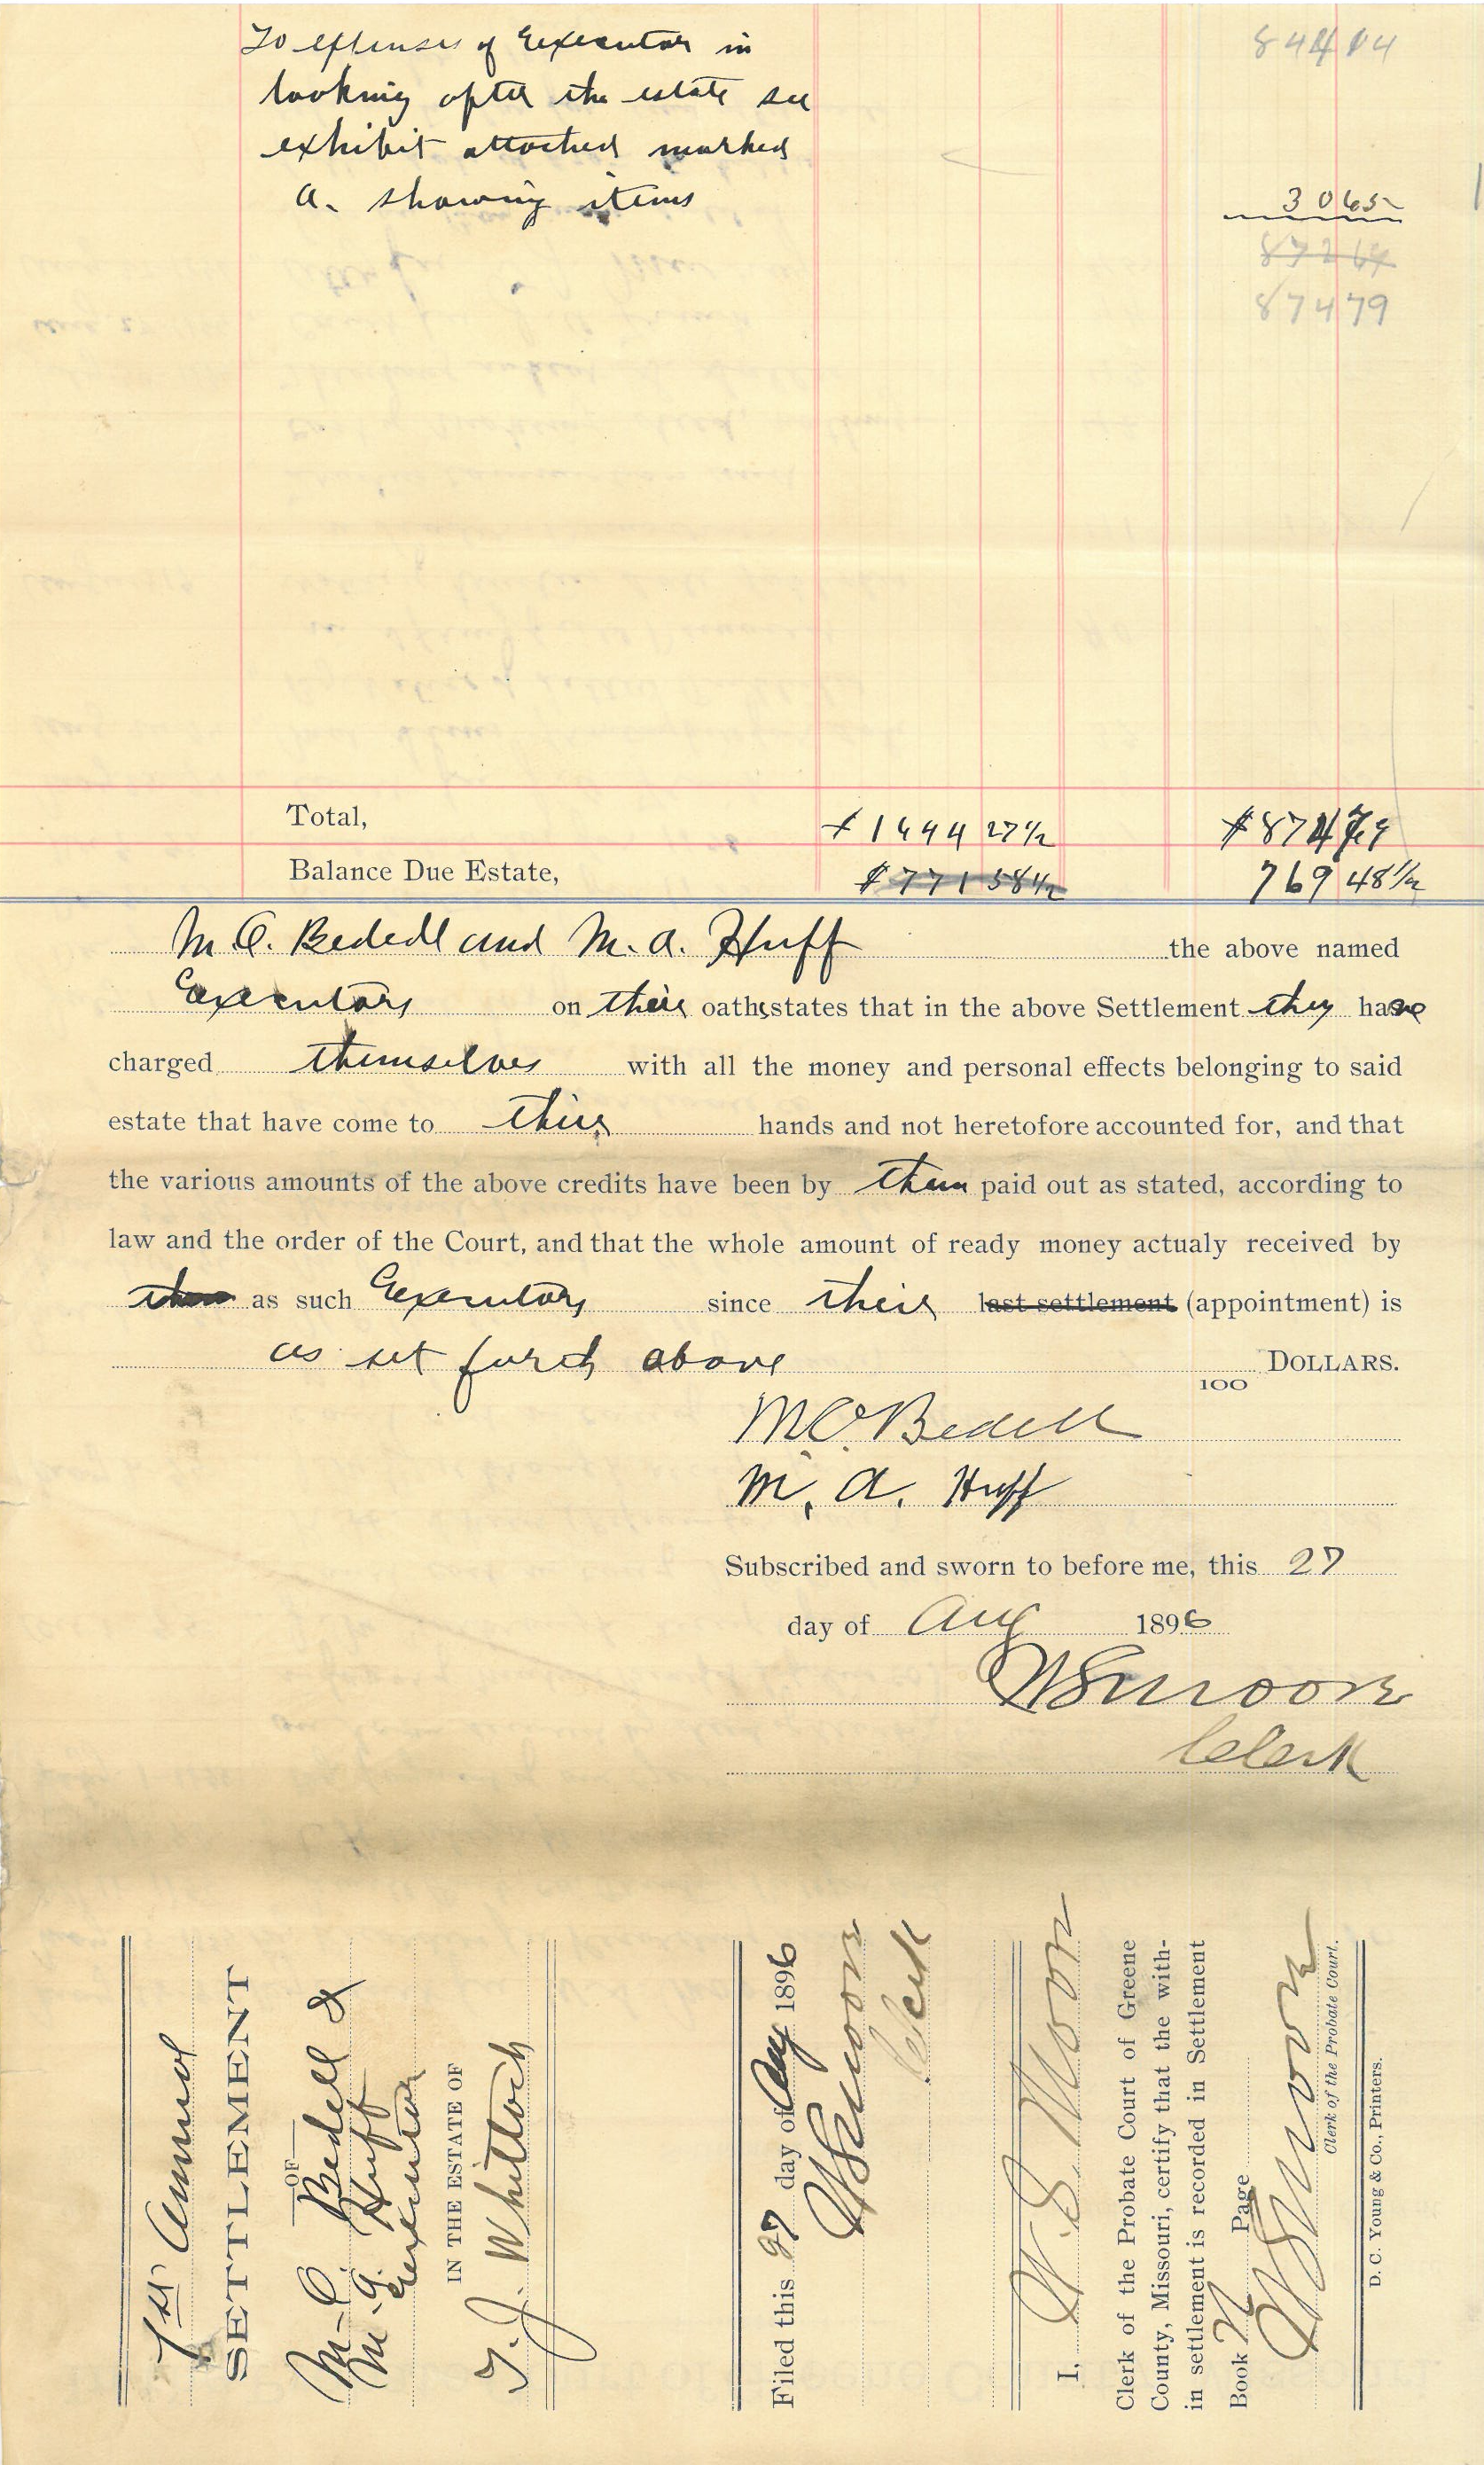 To expenses of Executor in
84414
looking after the estate see
exhibit attached marked
A. showing items
3065
87264
87479
Total, $1644 27½ $874 79
Balance Due Estate, $771 58½ 769 48½
M. O. Bedell and M. A. Huff the above named
Executors on their oaths states that in the above Settlement they have
charged themselves with all the money and personal effects belonging to said
estate that have come to their hands and not heretofore accounted for, and that
the various amounts of the above credits have been by them paid out as stated, according to
law and the order of the Court, and that the whole amount of ready money actualy received by
them as such Executors since their last settlement (appointment) is
as set forth above DOLLARS.
100
M. O. Bedell
M. A. Huff
Subscribed and sworn to before me, this 27
day of Aug 1896
W S Moore
Clerk
1st Annual
SETTLEMENT
OF
M. O. Bedell &
M. A. Huff
Executors
IN THE ESTATE OF
T. J. Whitlock
Filed this 27 day of Aug 1896
W S Moore
Clerk
I, W. S. Moore
Clerk of the Probate Court of Greene
County, Missouri, certify that the with-
in settlement is recorded in Settlement
Book N Page
W S Moore
Clerk of the Probate Court.
D. C. Young & Co., Printers.